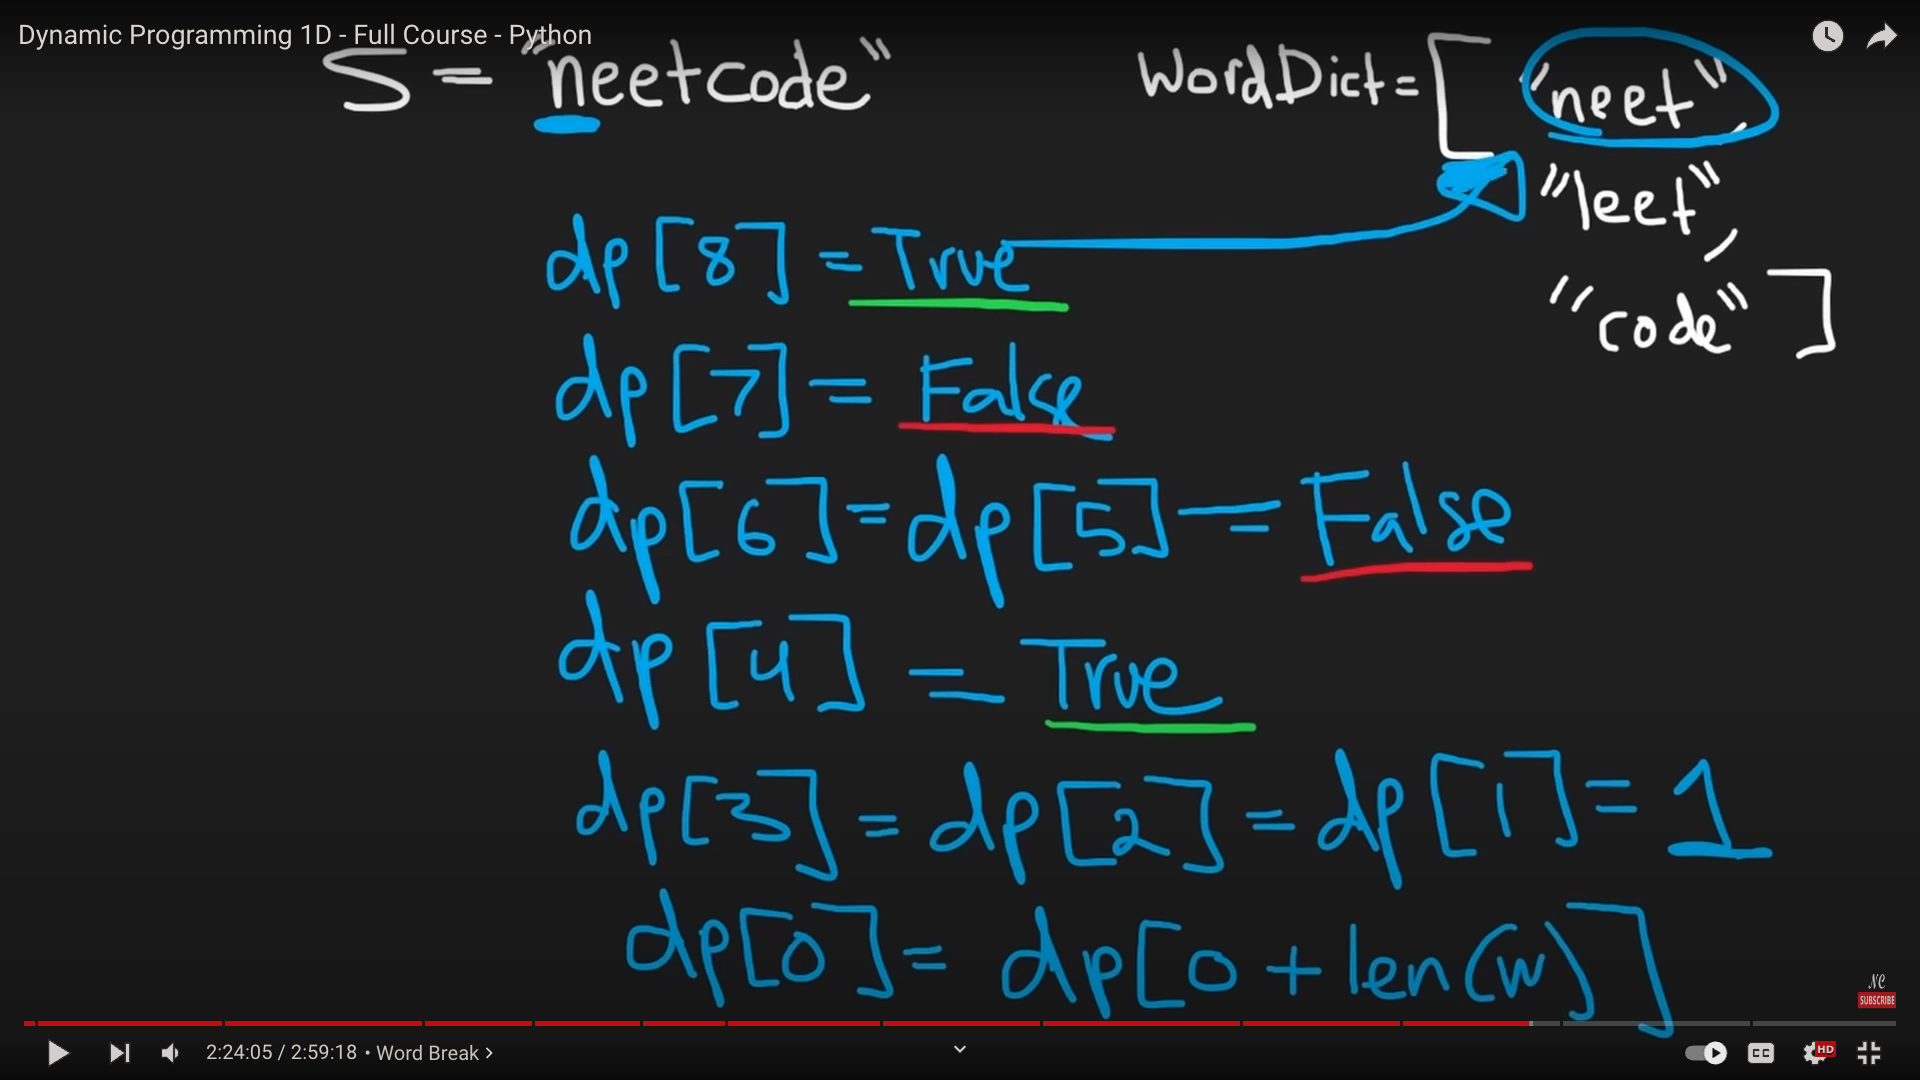 Dynamic Programming 1D - Full Course - Python
S = "neetcode"
WordDict = [ "neet",
"leet",
"code" ]
dp[8] = True
dp[7] = False
dp[6] = dp[5] = False
dp[4] = True
dp[3] = dp[2] = dp[1] = 1
dp[0] = dp[0 + len(w)]
NC
SUBSCRIBE
2:24:05 / 2:59:18 • Word Break >
CC
HD